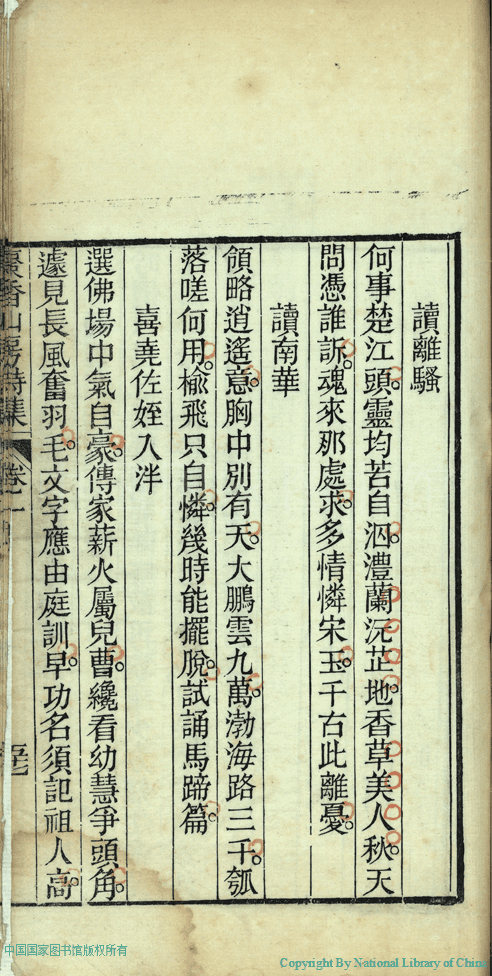 讀離騷
何事楚江頭。靈均苦自泅。澧蘭沅芷地。香草美人秋。天
問憑誰訴。魂來那處求。多情憐宋玉。千古此離憂。
讀南華
領略逍遙意。胸中別有天。大鵬雲九萬。渤海路三千。瓠
落嗟何用。榆飛只自憐。幾時能擺脫。試誦馬蹄篇。
喜堯佐姪入泮
選佛場中氣自豪。傳家薪火屬兒曹。纔看幼慧爭頭角。
遽見長風奮羽毛。文字應由庭訓早。功名須記祖人高。
香山房詩集 卷一
中国国家图书馆版权所有
Copyright By National Library of China